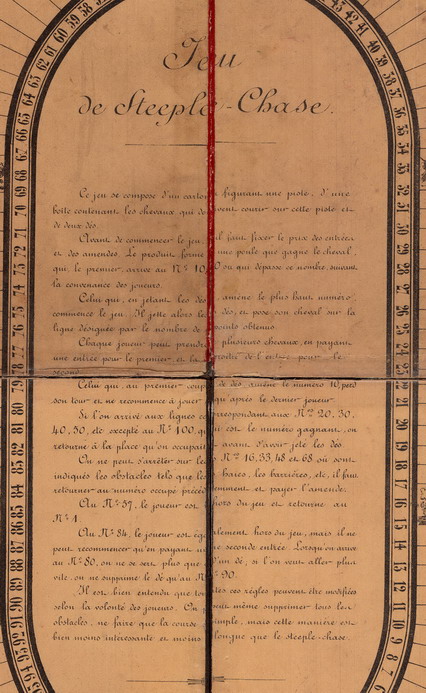 Jeu
de Steeple-Chase.
Ce jeu se compose d'un carton figurant une piste, d'une
boîte contenant les chevaux qui doivent courir sur cette piste et
de deux dés.
Avant de commencer le jeu, il faut fixer le prix des entrées
et des amendes. Le produit forme une poule que gagne le cheval,
qui, le premier, arrive au Nº 100 ou qui dépasse ce nombre, suivant
la convenance des joueurs.
Celui qui, en jetant les dés, amène le plus haut numéro
commence le jeu. Il jette alors les dés, et pose son cheval sur la
ligne désignée par le nombre de points obtenus.
Chaque joueur peut prendre plusieurs chevaux, en payant
une entrée pour le premier et la moitié de l'entrée pour le
second.
Celui qui, au premier coup de dés, amène le numéro 10, perd
son tour et ne recommence à jouer qu'après le dernier joueur.
Si l'on arrive aux lignes correspondant aux Nos 20, 30,
40, 50, etc excepté au Nº 100, qui est le numéro gagnant, on
retourne à la place qu'on occupait avant d'avoir jeté les dés.
On ne peut s'arrêter sur les Nos 16, 33, 48 et 68 où sont
indiqués les obstacles tels que les haies, les barrières, etc, il faut
retourner au numéro occupé précédemment et payer l'amende.
Au Nº 57, le joueur est hors du jeu et retourne au
Nº 1.
Au Nº 84, le joueur est également hors du jeu, mais il ne
peut recommencer qu'en payant une seconde entrée. Lorsqu'on arrive
au Nº 80, on ne se sert plus que d'un dé, si l'on veut aller plus
vite, on ne supprime le dé qu'au Nº 90.
Il est bien entendu que toutes ces règles peuvent être modifiées
selon la volonté des joueurs. On peut même supprimer tous les
obstacles, ne faire que la course simple, mais cette manière est
bien moins intéressante et moins longue que le steeple-chase.
60 61 62 63 64 65 66 67 68 69 70 71 72 73 74 75 76 77 78 79 80 81 82 83 84 85 86 87 88 89 90 91 92 93 94 95
43 42 41 40 39 38 37 36 35 34 33 32 31 30 29 28 27 26 25 24 23 22 21 20 19 18 17 16 15 14 13 12 11 10 9 8 7